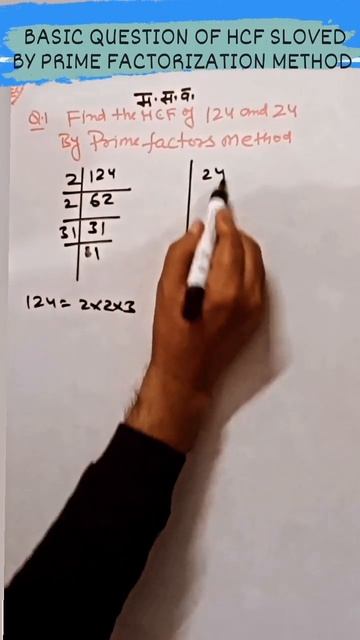 BASIC QUESTION OF HCF SLOVED
BY PRIME FACTORIZATION METHOD
म.स.व.
Q.1 Find the HCF of 124 and 24
By Prime factors method
2 124
2 62
31 31
1
124 = 2×2×3
24